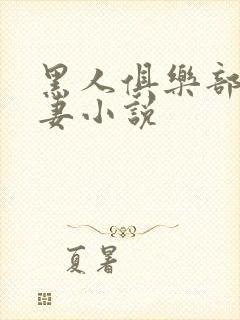 黑人俱樂部
妻小說
夏暑